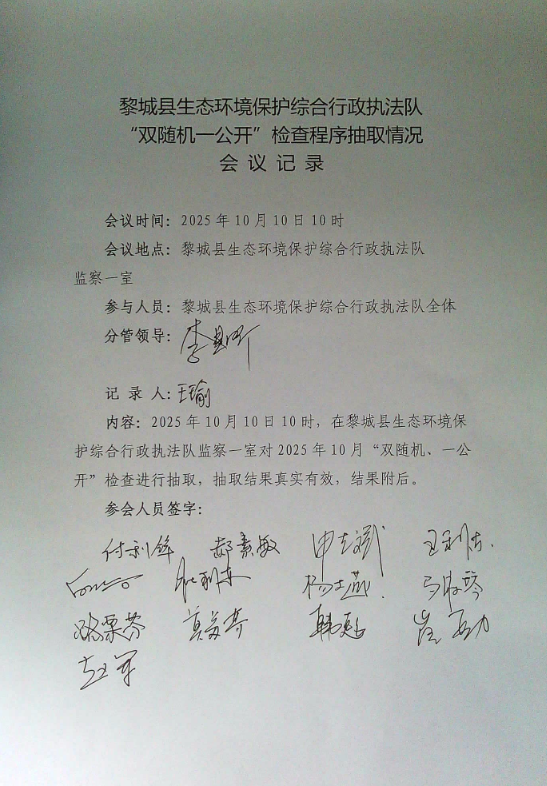 黎城县生态环境保护综合行政执法队
“双随机一公开”检查程序抽取情况
会 议 记 录
会议时间：2025 年 10 月 10 日 10 时
会议地点：黎城县生态环境保护综合行政执法队
监察一室
参与人员：黎城县生态环境保护综合行政执法队全体
分管领导：李
记 录 人：王瑜
内容：2025 年 10 月 10 日 10 时，在黎城县生态环境保
护综合行政执法队监察一室对 2025 年 10 月“双随机、一公
开”检查进行抽取，抽取结果真实有效，结果附后。
参会人员签字：
付利锋 郝素敏 申志斌 王利
杨志燕
韩 崔